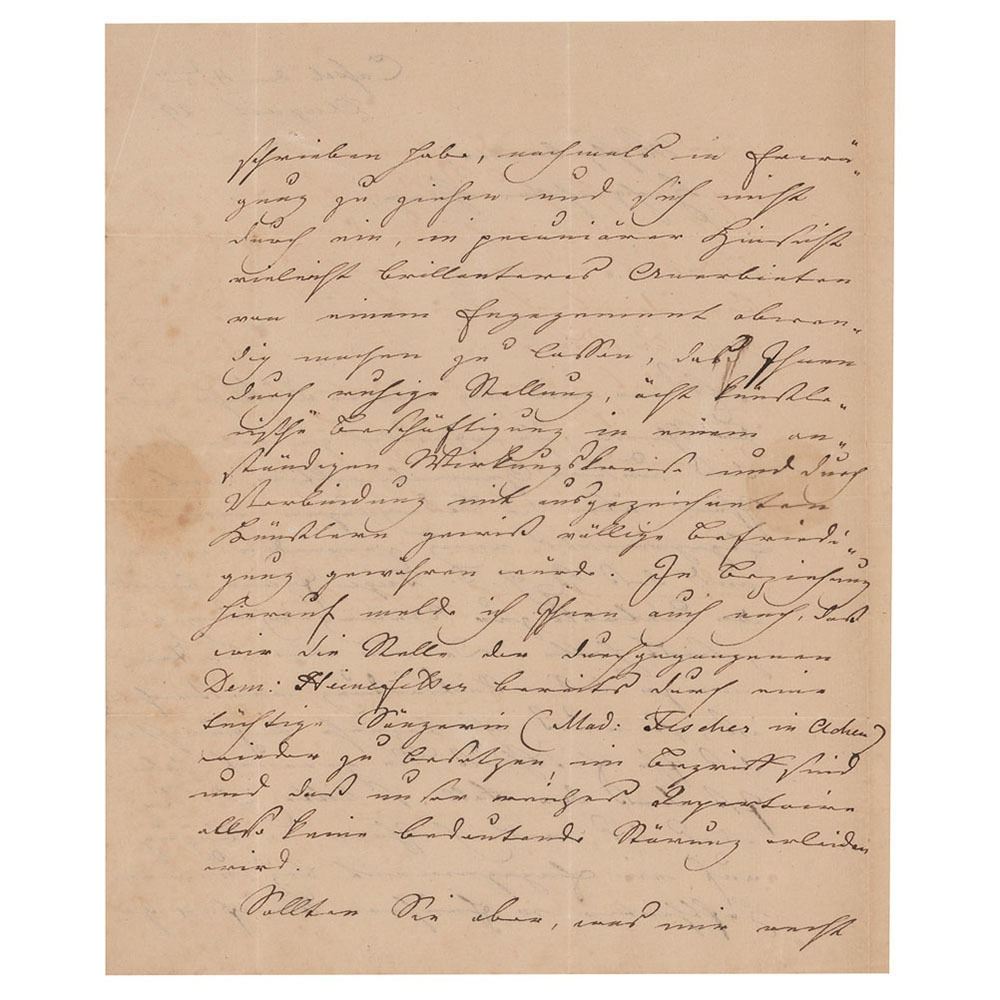 schrieben habe, nochmals in Erwä-
gung zu ziehen und sich nicht
durch ein, in pecuniärer Hinsicht
vieleicht brillanteres Anerbieten
von einem Engagement abwen-
dig machen zu lassen, daß Ihnen
durch ruhige Stellung, ächt künstle-
rische Beschäftigung in einem an-
ständigen Wirkungskreise und durch
Verbindung mit ausgezeichneten
Künstlern gewiß völlige Befriedi-
gung gewähren würde. In Beziehung
hierauf melde ich Ihnen auch noch, daß
wir die Stelle der durchgegangenen
Dem: Heinefetter bereits durch eine
tüchtige Sängerin (Mad: Fischer in Achen)
wieder zu besetzen im Begriff sind
und daß unser reiches Repertoire
also keine bedeutende Störung erleiden
wird.
Sollten Sie aber, was mir recht